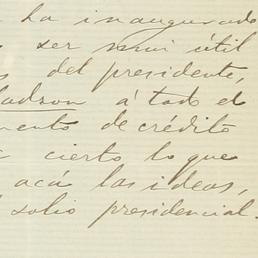 ha inaugurado
ser mui útil
del presidente,
ladron á todo el
mento de crédito
cierto lo que
acá las ideas,
solio presidencial.